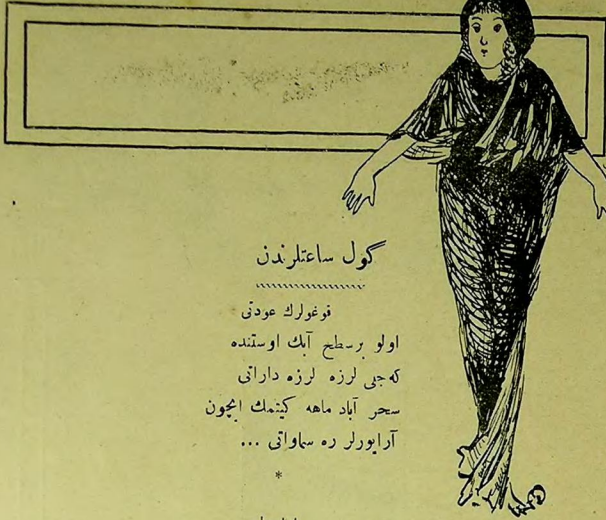 گول ساعتلرندن
قوغولرك عودتى
اولو برسطح آبك اوستنده
كه جبى لرزه لرزه داراتى
سحر آباد ماهه كيتمك ايچون
آرايورلر ره سماواتى ...
*